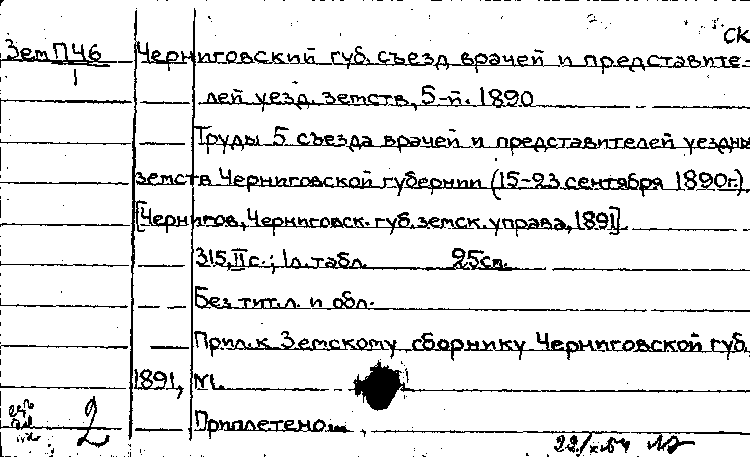 СК
ЗемП46 Черниговский губ. съезд врачей и представите-
1
лей уезд. земств, 5-й. 1890
Труды 5 съезда врачей и представителей уездны
земств Черниговской губернии (15-23 сентября 1890г.)
[Чернигов, Черниговск. губ. земск. управа, 1891].
315, II с.; 1л. табл. 25см.
Без тит. л. и обл.
Прил. к Земскому сборнику Черниговской губ.
1891, №1.
Приплетено
2